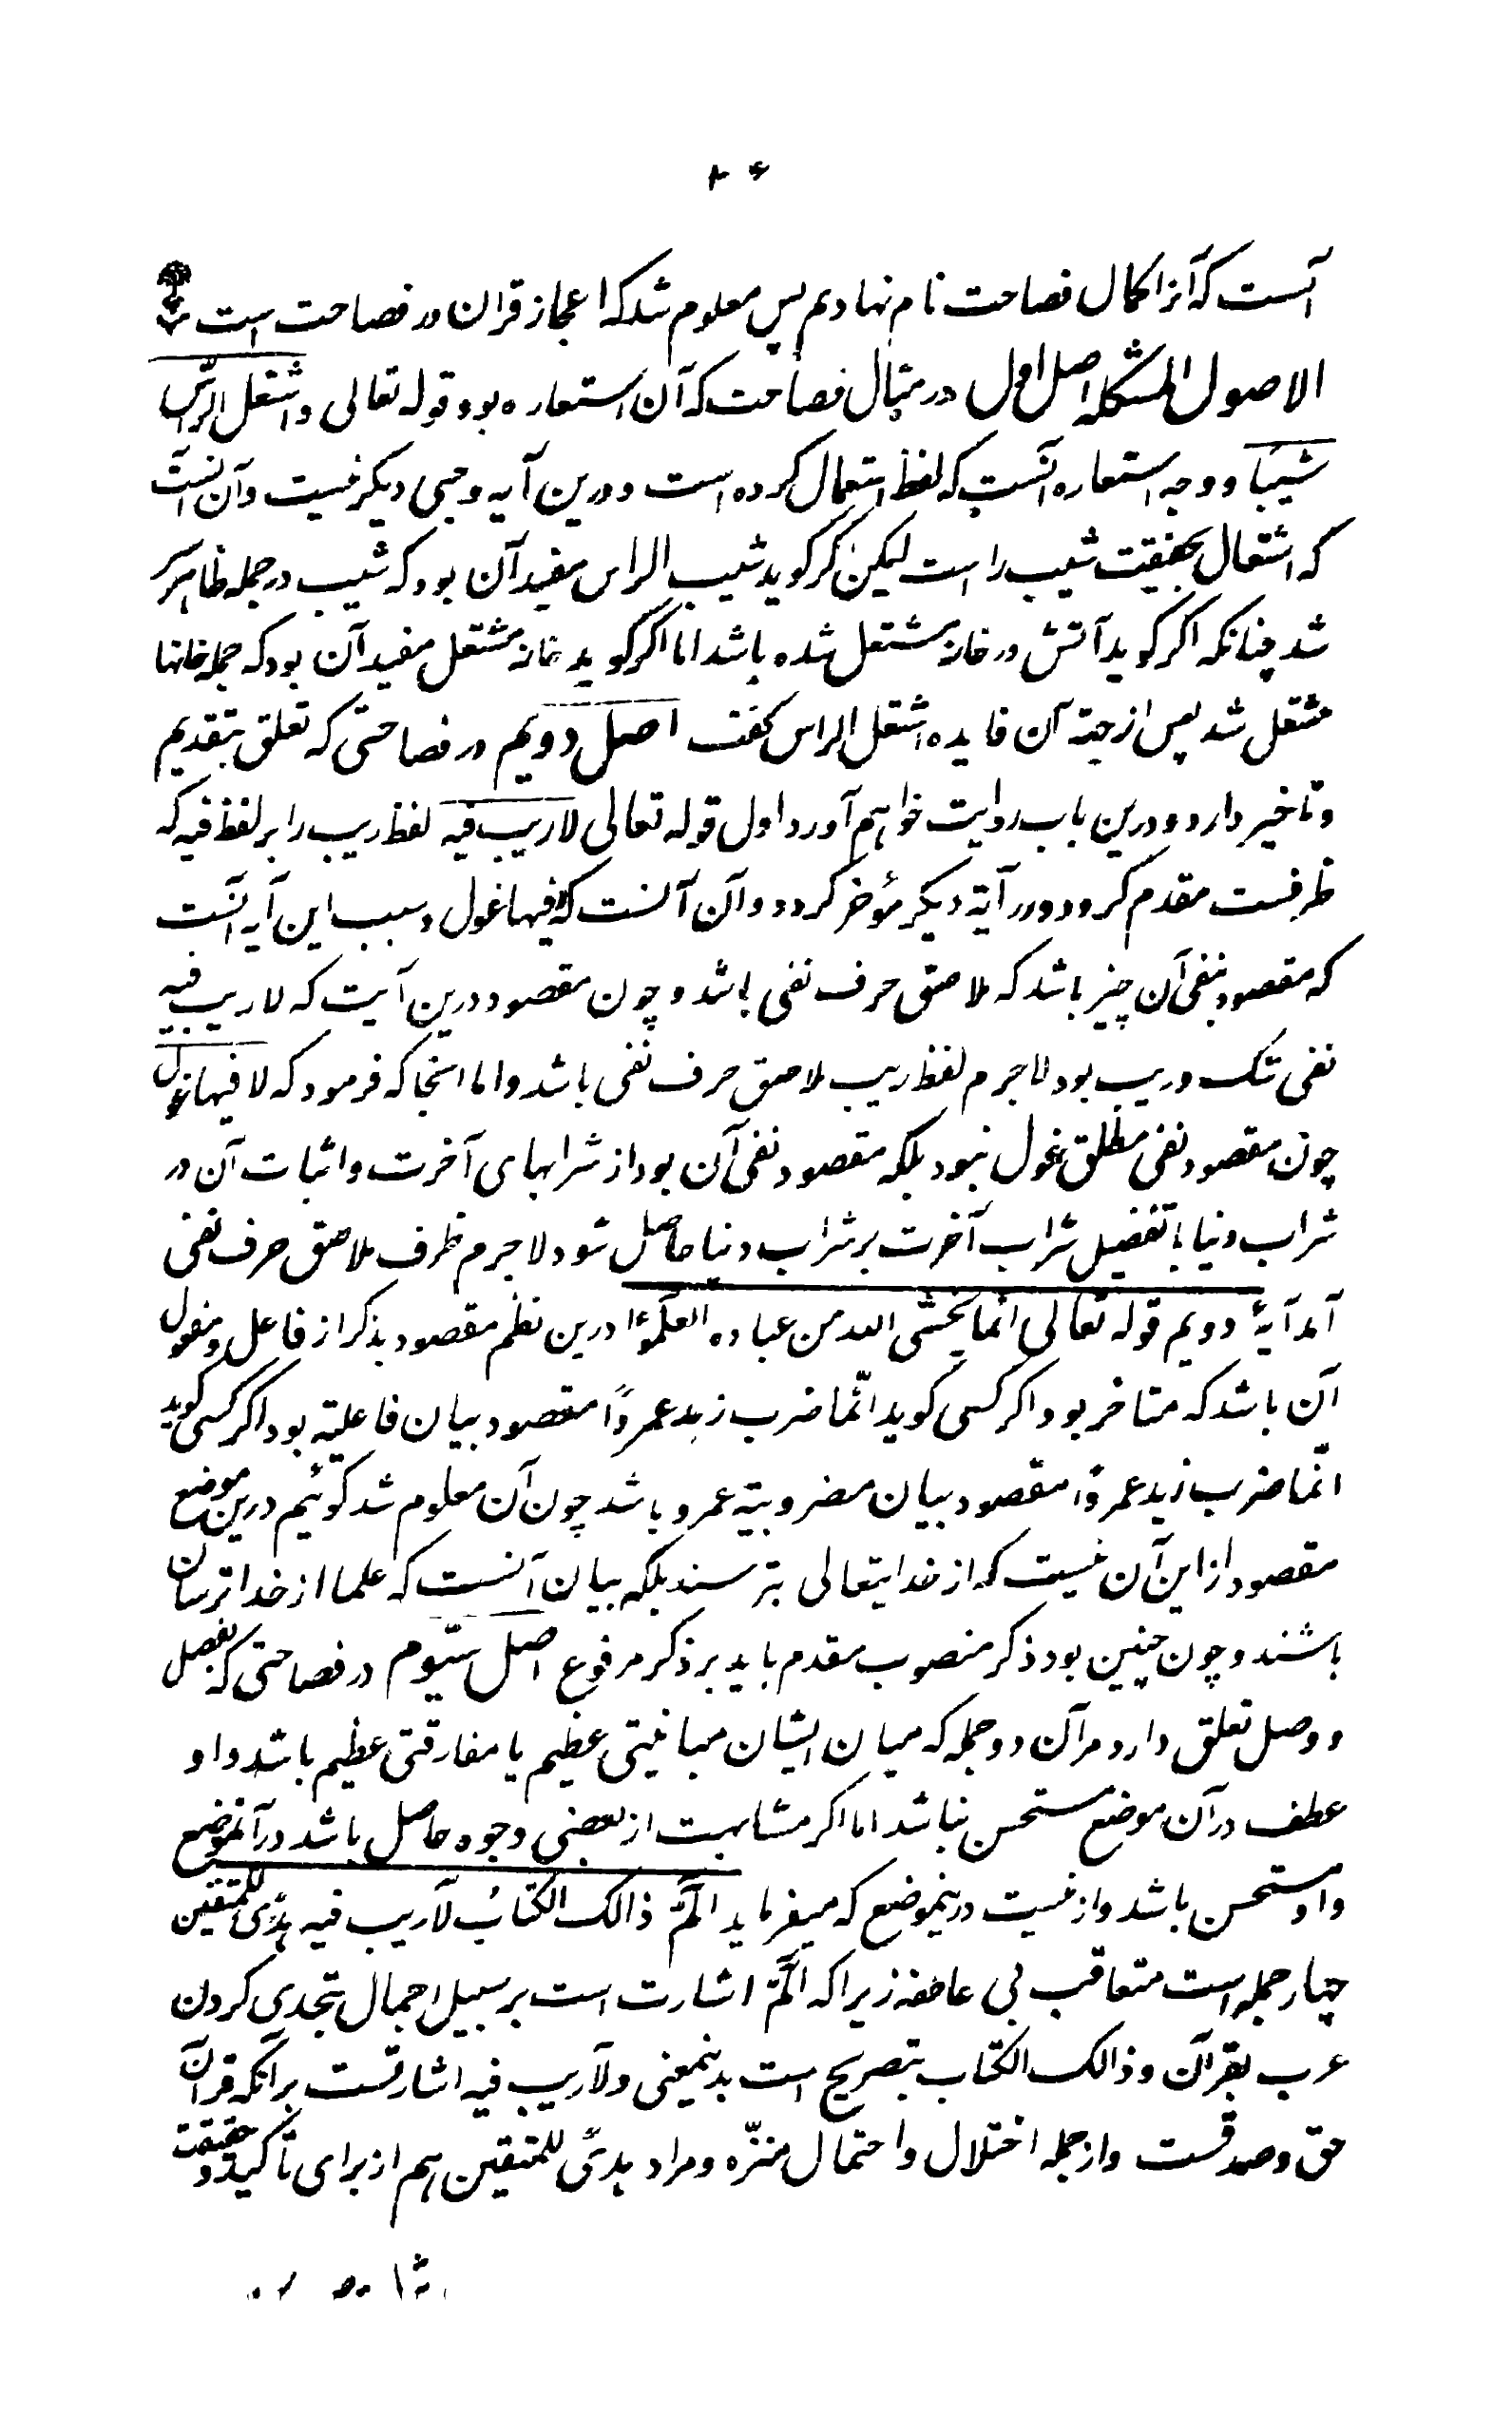 آنست که آنرا کمال فصاحت نام نهادیم پس معلوم شد که اعجاز قران در فصاحت است
الاصول المشکله اصل اول در مثال فصاحت که آن استعاره بود قوله تعالی واشتعل الراس
شیبا و وجه استعاره آنست که لفظ اشتعال کرده است و درین آیه وجهی دیکر نیست وآن آنست
که اشتعال بحقیقت شیب راست لیکن کر کوید شیب الراس مفید آن بود که شیب در جمله ظاهر
شد چنانکه اکر کوید آتش در خانه مشتعل شده باشد اما اکر کوید خانه مشتعل مفید آن بود که جمله خانها
مشتعل شد پس از جهة آن فایده اشتعل الراس کفت اصل دویم در فصاحتی که تعلق بتقدیم
و تاخیر دارد و درین باب روایت خواهیم آورد اول قوله تعالی لاریب فیه لفظ ریب را بر لفظ فیه که
ظرفست مقدم کرد و در آیة دیکر مؤخر کرد و آن آنست که لافیها غول و سبب این آیه آنست
که مقصود بنفی آن چیز باشد که ملاصق حرف نفی باشد و چون مقصود درین آیت که لاریب فیه
نفی شک و ریب بود لاجرم لفظ ریب ملاصق حرف نفی باشد واما اینجا که فرمود که لا فیها غول
چون مقصود نفی مطلق غول نبود بلکه مقصود نفی آن بود از شرابهای آخرت واثبات آن در
شراب دنیا تا تفضیل شراب آخرت بر شراب دنیا حاصل شود لاجرم ظرف ملاصق حرف نفی
آمد آیۀ دویم قوله تعالی انما یخشی الله من عباده العلمؤا درین نظم مقصود بذکر از فاعل و مفعول
آن باشد که متاخر بود اکر کسی کوید انّما ضرب زید عمرواً مقصود بیان فاعلیة بود اکر کسی کوید
انّما ضرب زید عمرواً مقصود بیان مضروبیة عمرو باشد چون آن معلوم شد کوئیم درین موضع
مقصود از این آن نیست که از خدایتعالی بترسند بلکه بیان آنست که علما از خدا ترسان
باشند و چون چنین بود ذکر منصوب مقدم باید بر ذکر مرفوع اصل سیّوم در فصاحتی که بفصل
و وصل تعلق دارد مر آن دو جمله که میان ایشان مباینتی عظیم یا مفارقتی عظیم باشد واو
عطف در آن موضع مستحسن نباشد اما اکر مشابهت از بعضی وجوه حاصل باشد در آنموضع
واو مستحسن باشد واز نیست درینموضع که میفرماید المّ ذالک الکتابُ لاریب فیه هدًی للمتقین
چهار جمله است متعاقب بی عاطفه زیرا که المّ اشارت است بر سبیل اجمال بتحدی کردن
عرب بقرآن و ذالک الکتاب بتصریح است بدینمعنی و لاریب فیه اشارتست برآنکه قرآن
حق و صدقست واز جمله اختلال و احتمال منزّه و مراد هدًی للمتقین هم از برای تاکید و حقیقت